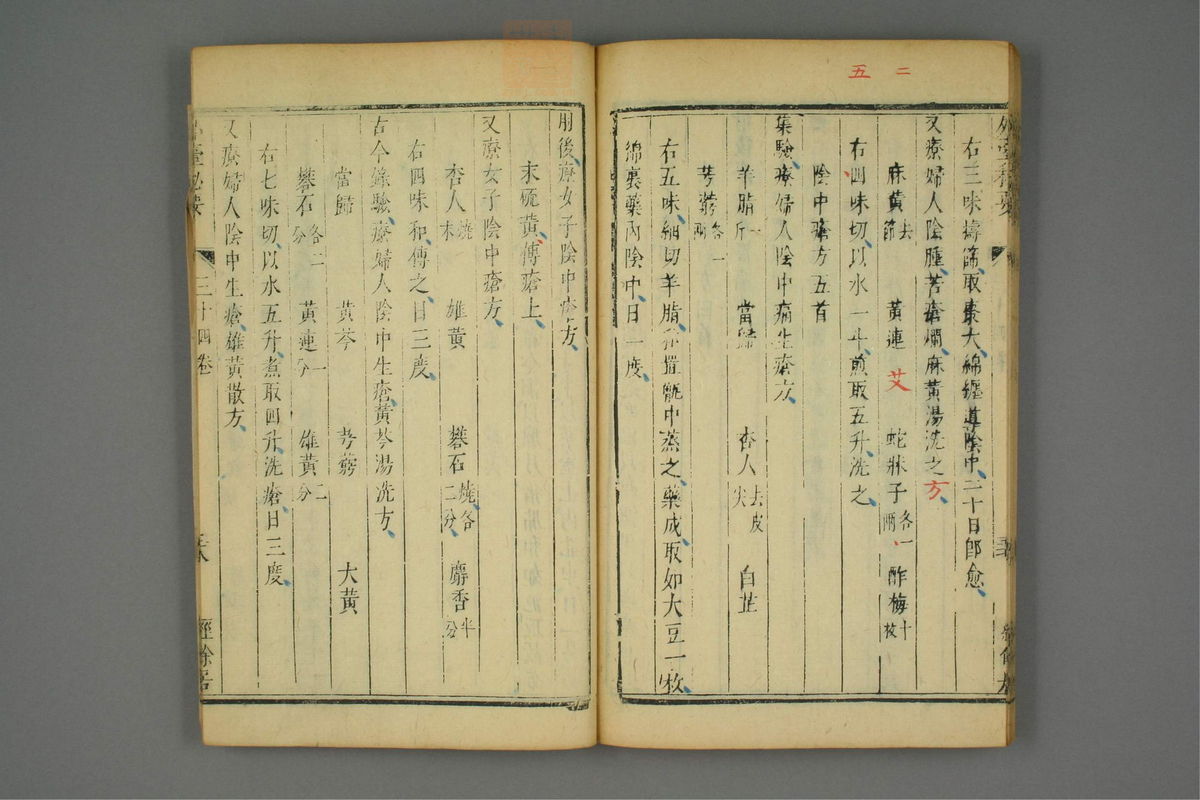 五 二
右三味擣篩取棗大綿纏導陰中二十日卽愈
又療婦人陰腫苦瘡爛麻黃湯洗之方
麻黃去節 黃連 艾 蛇牀子各一兩 酢梅十枚
右四味切以水一斗煎取五升洗之
陰中瘡方五首
集驗療婦人陰中痛生瘡方
羊脂一斤 當歸 杏人去皮尖 白芷
芎藭各一兩
右五味細切羊脂和置甑中蒸之藥成取如大豆一枚
綿裹藥內陰中日一度
肘後療女子陰中瘡方
末硫黃傅瘡上
又療女子陰中瘡方
杏人燒末 雄黃 礬石燒各二分 麝香半分
右四味和傅之日三度
古今錄驗療婦人陰中生瘡黃芩湯洗方
當歸 黃芩 芎藭 大黃
礬石各二分 黃連一分 雄黃二分
右七味切以水五升煮取四升洗瘡日三度
又療婦人陰中生瘡雄黃散方
臺秘要 三十四卷 經餘居